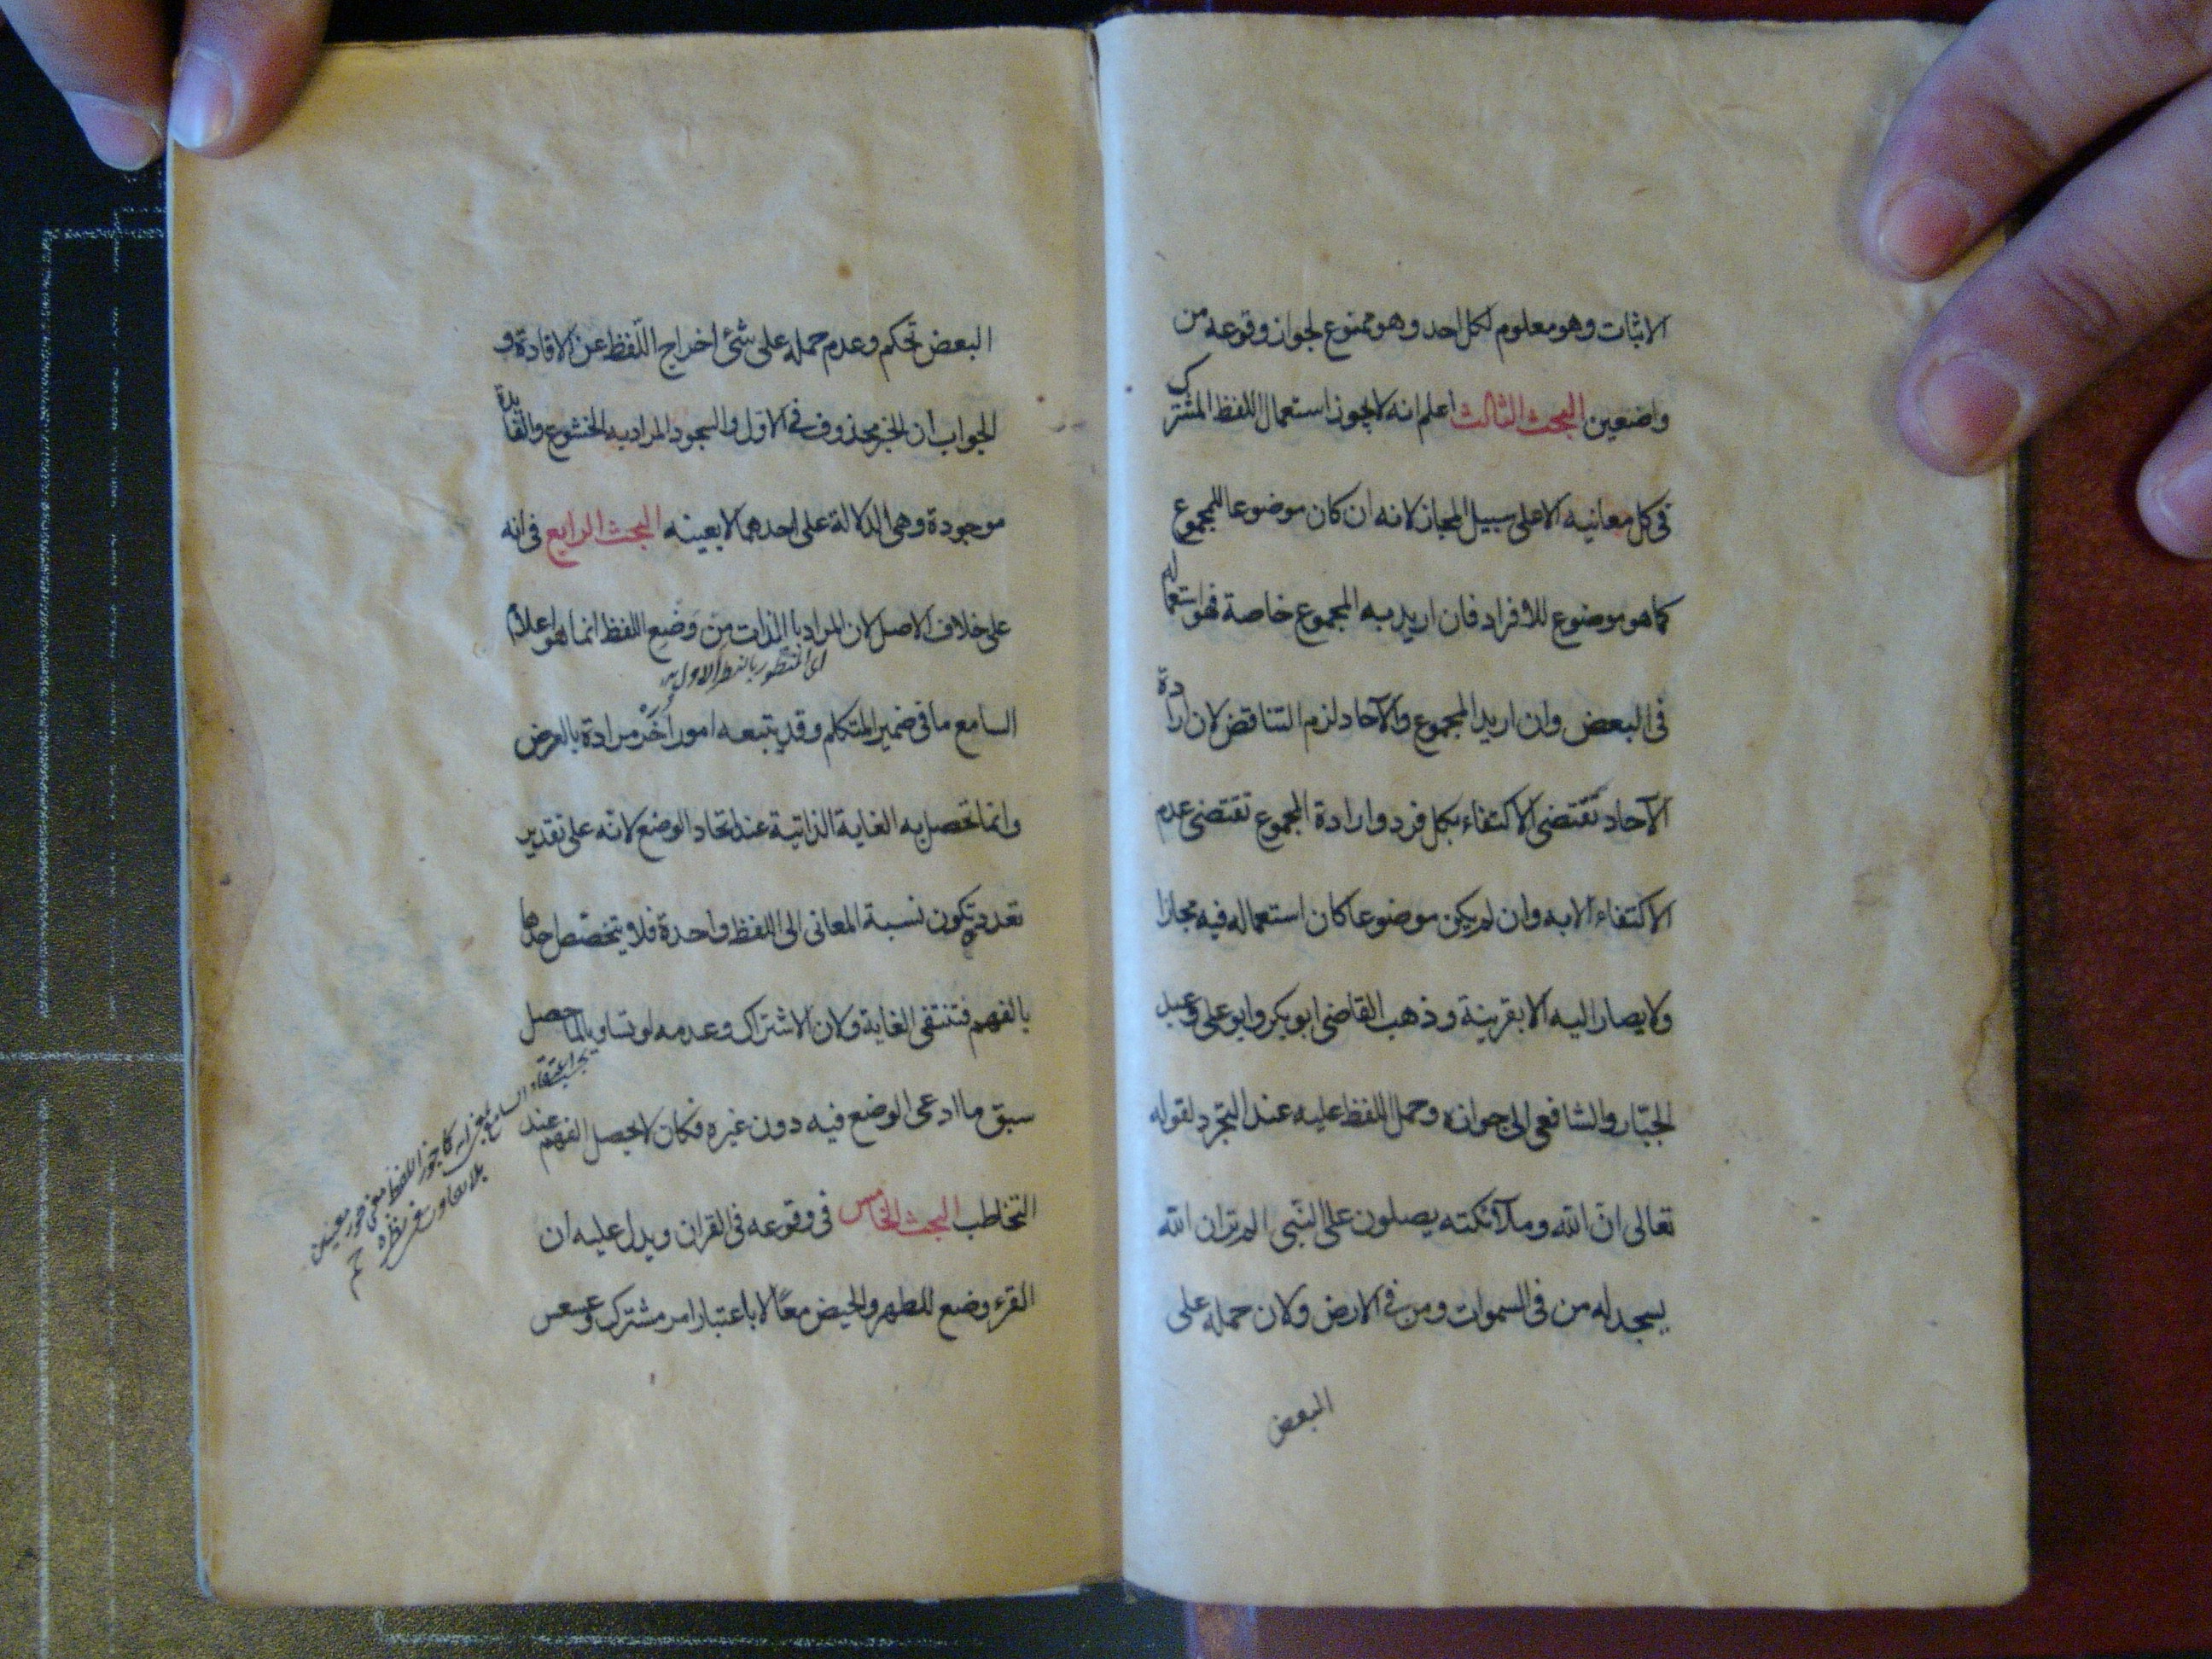 الاثبات وهو معلوم لكل احد وهو ممنوع لجواز وقوعه من
واضعين البحث الثالث اعلم انه لا يجوز استعمال اللفظ المشترك
فى كل معانيه الا على سبيل المجاز لانه ان كان موضوعا للمجموع
كما هو موضوع للافراد فان اريد به المجموع خاصة فهو استعماله
فى البعض وان اريد المجموع والآحاد لزم التناقض لان ارادة
الآحاد تقتضى الاكتفاء بكل فرد وارادة المجموع تقتضى عدم
الاكتفاء الا به وان لم يكن موضوعا كان استعماله فيه مجازا
ولا يصار اليه الا بقرينة وذهب القاضى ابو بكر وابو على وعبد
الجبّار والشافعى الى جوازه وحمل اللفظ عليه عند التجرد لقوله
تعالى انّ اللّه وملآئكته يصلون على النّبى الم تر ان اللّه
يسجد له من فى السموات ومن فى الارض ولان حمله على
البعض
البعض تحكم وعدم حمله على شئ اخراج اللّفظ عن الافادة و
الجواب ان الخبر محذوف فى الاول والسجود المراد به الخشوع والفايدة
موجودة وهى الدلالة على احدهما لا بعينه البحث الرابع فى انه
على خلاف الاصل لان المراد بالذات من وضع اللفظ انما هو اعلام
اى المنظور بالنظر الاول
السامع ما فى ضمير المتكلم وقد يتبعه امور اخر مرادة بالعرض
وانما تحصل به الغاية الذاتية عند اتحاد الوضع لانّه على تقدير
تعدده تكون نسبة المعانى الى اللفظ واحدة فلا يتخصّص احدها
بالفهم فتنتفى الغاية ولان الاشتراك وعدمه لو تساويا لما حصل
سبق ما ادعى الوضع فيه دون غيره فكان لا يحصل الفهم عند
التخاطب البحث الخامس فى وقوعه فى القران ويدل عليه ان
القرء وضع للطهر والحيض معًا لا باعتبار امر مشترك وعسعس